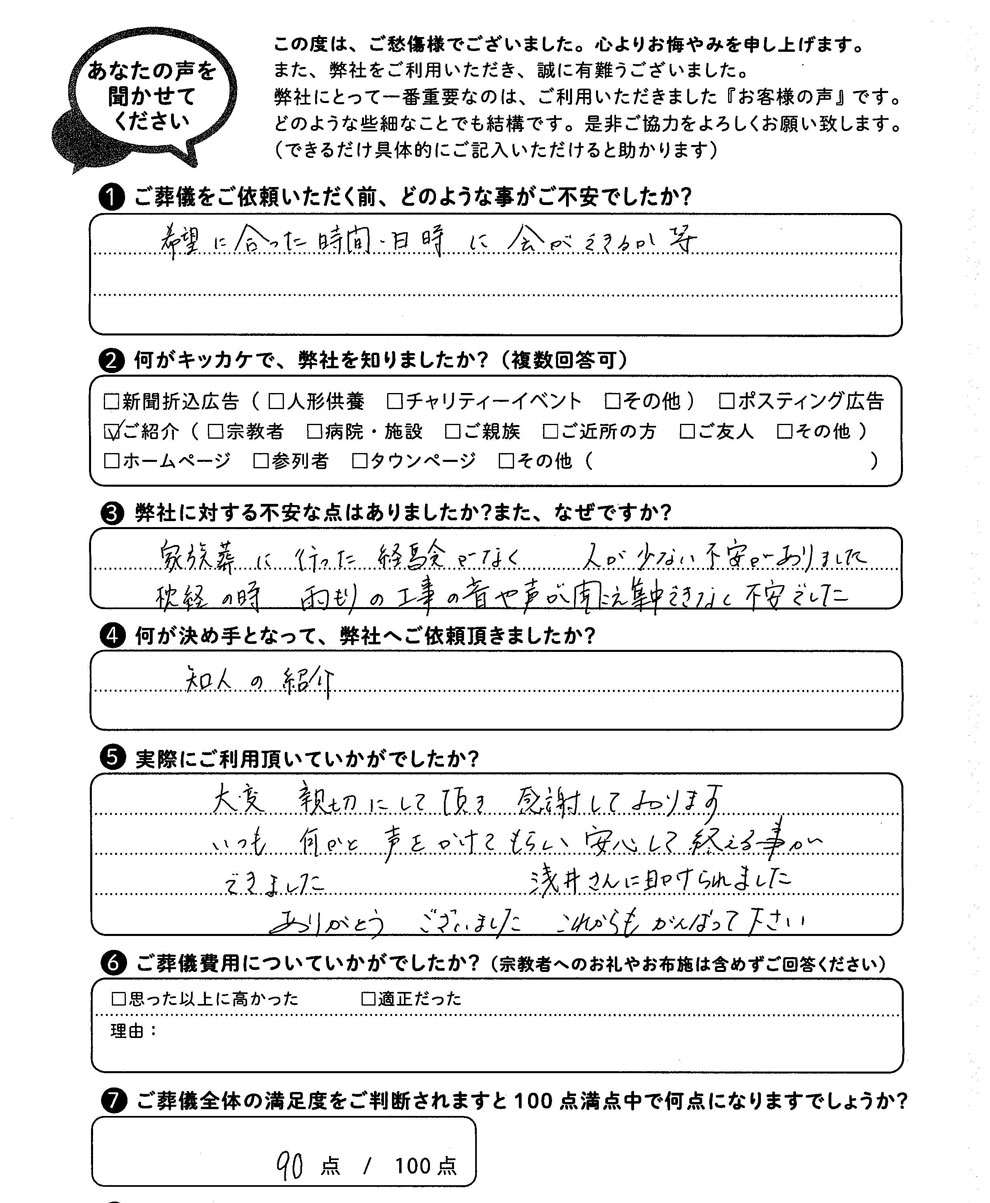 あなたの声を
聞かせて
ください
この度は、ご愁傷様でございました。心よりお悔やみを申し上げます。
また、弊社をご利用いただき、誠に有難うございました。
弊社にとって一番重要なのは、ご利用いただきました『お客様の声』です。
どのような些細なことでも結構です。是非ご協力をよろしくお願い致します。
（できるだけ具体的にご記入いただけると助かります）
❶ ご葬儀をご依頼いただく前、どのような事がご不安でしたか？
希望に合った時間・日時に会ができるか等
❷ 何がキッカケで、弊社を知りましたか？（複数回答可）
□新聞折込広告（ □人形供養 □チャリティーイベント □その他 ） □ポスティング広告
☑ご紹介（ □宗教者 □病院・施設 □ご親族 □ご近所の方 □ご友人 □その他 ）
□ホームページ □参列者 □タウンページ □その他（ ）
❸ 弊社に対する不安な点はありましたか？また、なぜですか？
家族葬に行った経験がなく 人が少ない不安がありました
枕経の時 雨もりの工事の音や声が聞こえ集中できなく不安でした
❹ 何が決め手となって、弊社へご依頼頂きましたか？
知人の紹介
❺ 実際にご利用頂いていかがでしたか？
大変 親切にして頂き 感謝しております
いつも 何かと 声をかけてもらい 安心して終える事が
できました 浅井さんに助けられました
ありがとう ございました これからもがんばって下さい
❻ ご葬儀費用についていかがでしたか？（宗教者へのお礼やお布施は含めずご回答ください）
□思った以上に高かった □適正だった
理由：
❼ ご葬儀全体の満足度をご判断されますと100点満点中で何点になりますでしょうか？
90 点 / 100点